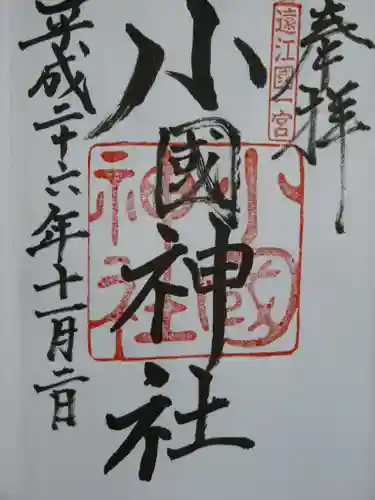 奉拝
遠江國一宮
小國神社
小國神社
平成二十六年十一月二日